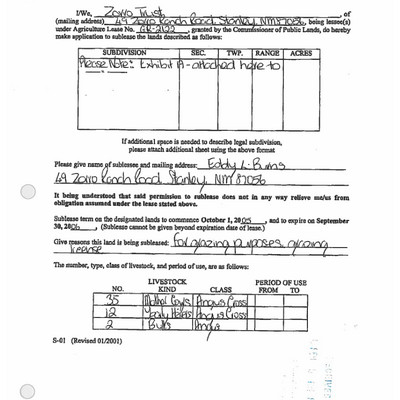 I/We, Zorro Trust, of
(mailing address) 49 Zorro Ranch Road, Stanley, NM 87056, being lessee(s)
under Agriculture Lease No. GR-2122, granted by the Commissioner of Public Lands, do hereby
make application to sublease the lands described as follows:
SUBDIVISION SEC. TWP. RANGE ACRES
Please Note: Exhibit A - attached here to
If additional space is needed to describe legal subdivision,
please attach additional sheet using the above format
Please give name of sublessee and mailing address: Eddy L. Burns
49 Zorro Ranch Road, Stanley, NM 87056
It being understood that said permission to sublease does not in any way relieve me/us from
obligation assumed under the lease stated above.
Sublease term on the designated lands to commence October 1, 2005, and to expire on September
30, 2006, (Sublease cannot be given beyond expiration date of lease.)
Give reasons this land is being subleased: for grazing purposes grazing
license
The number, type, class of livestock, and period of use, are as follows:
LIVESTOCK PERIOD OF USE
NO. KIND CLASS FROM TO
35 Cows Angus Cross
12 Heifers Angus Cross
2 Bulls Angus
S-01 (Revised 01/2001)